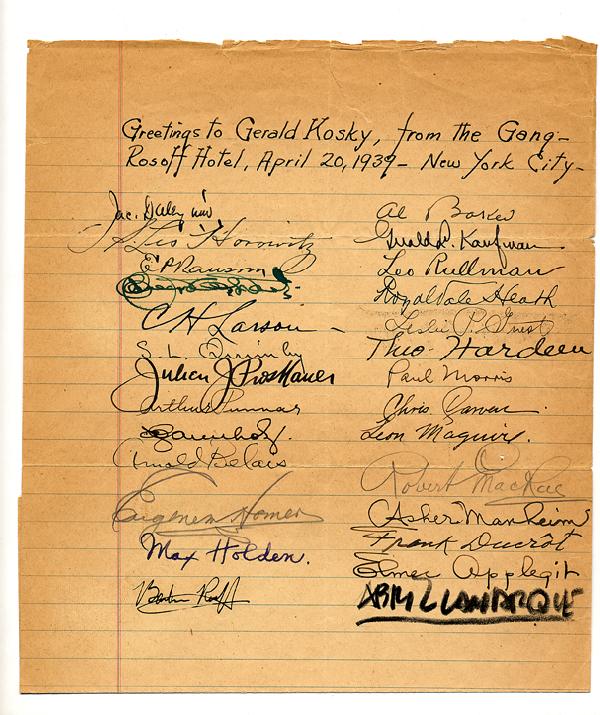 Greetings to Gerald Kosky, from the Gang-
Rosoff Hotel, April 20, 1939- New York City-
Jac. Daley
H. Leo Horowitz
E P Ransom
C H Larson -
S. L. Quimby
Julien J Proskauer
Arthur
Arnold Belais
Eugene Homer
Max Holden.
Al Baker
Gerald R. Kaufman
Leo Rullman
Royal Vale Heath
Leslie P. Guest
Theo. Hardeen
Paul Morris
Chris.
Leon Maguire.
Robert MacRae
Asher Manheim
Frank Ducrôt
Elmer Applegit